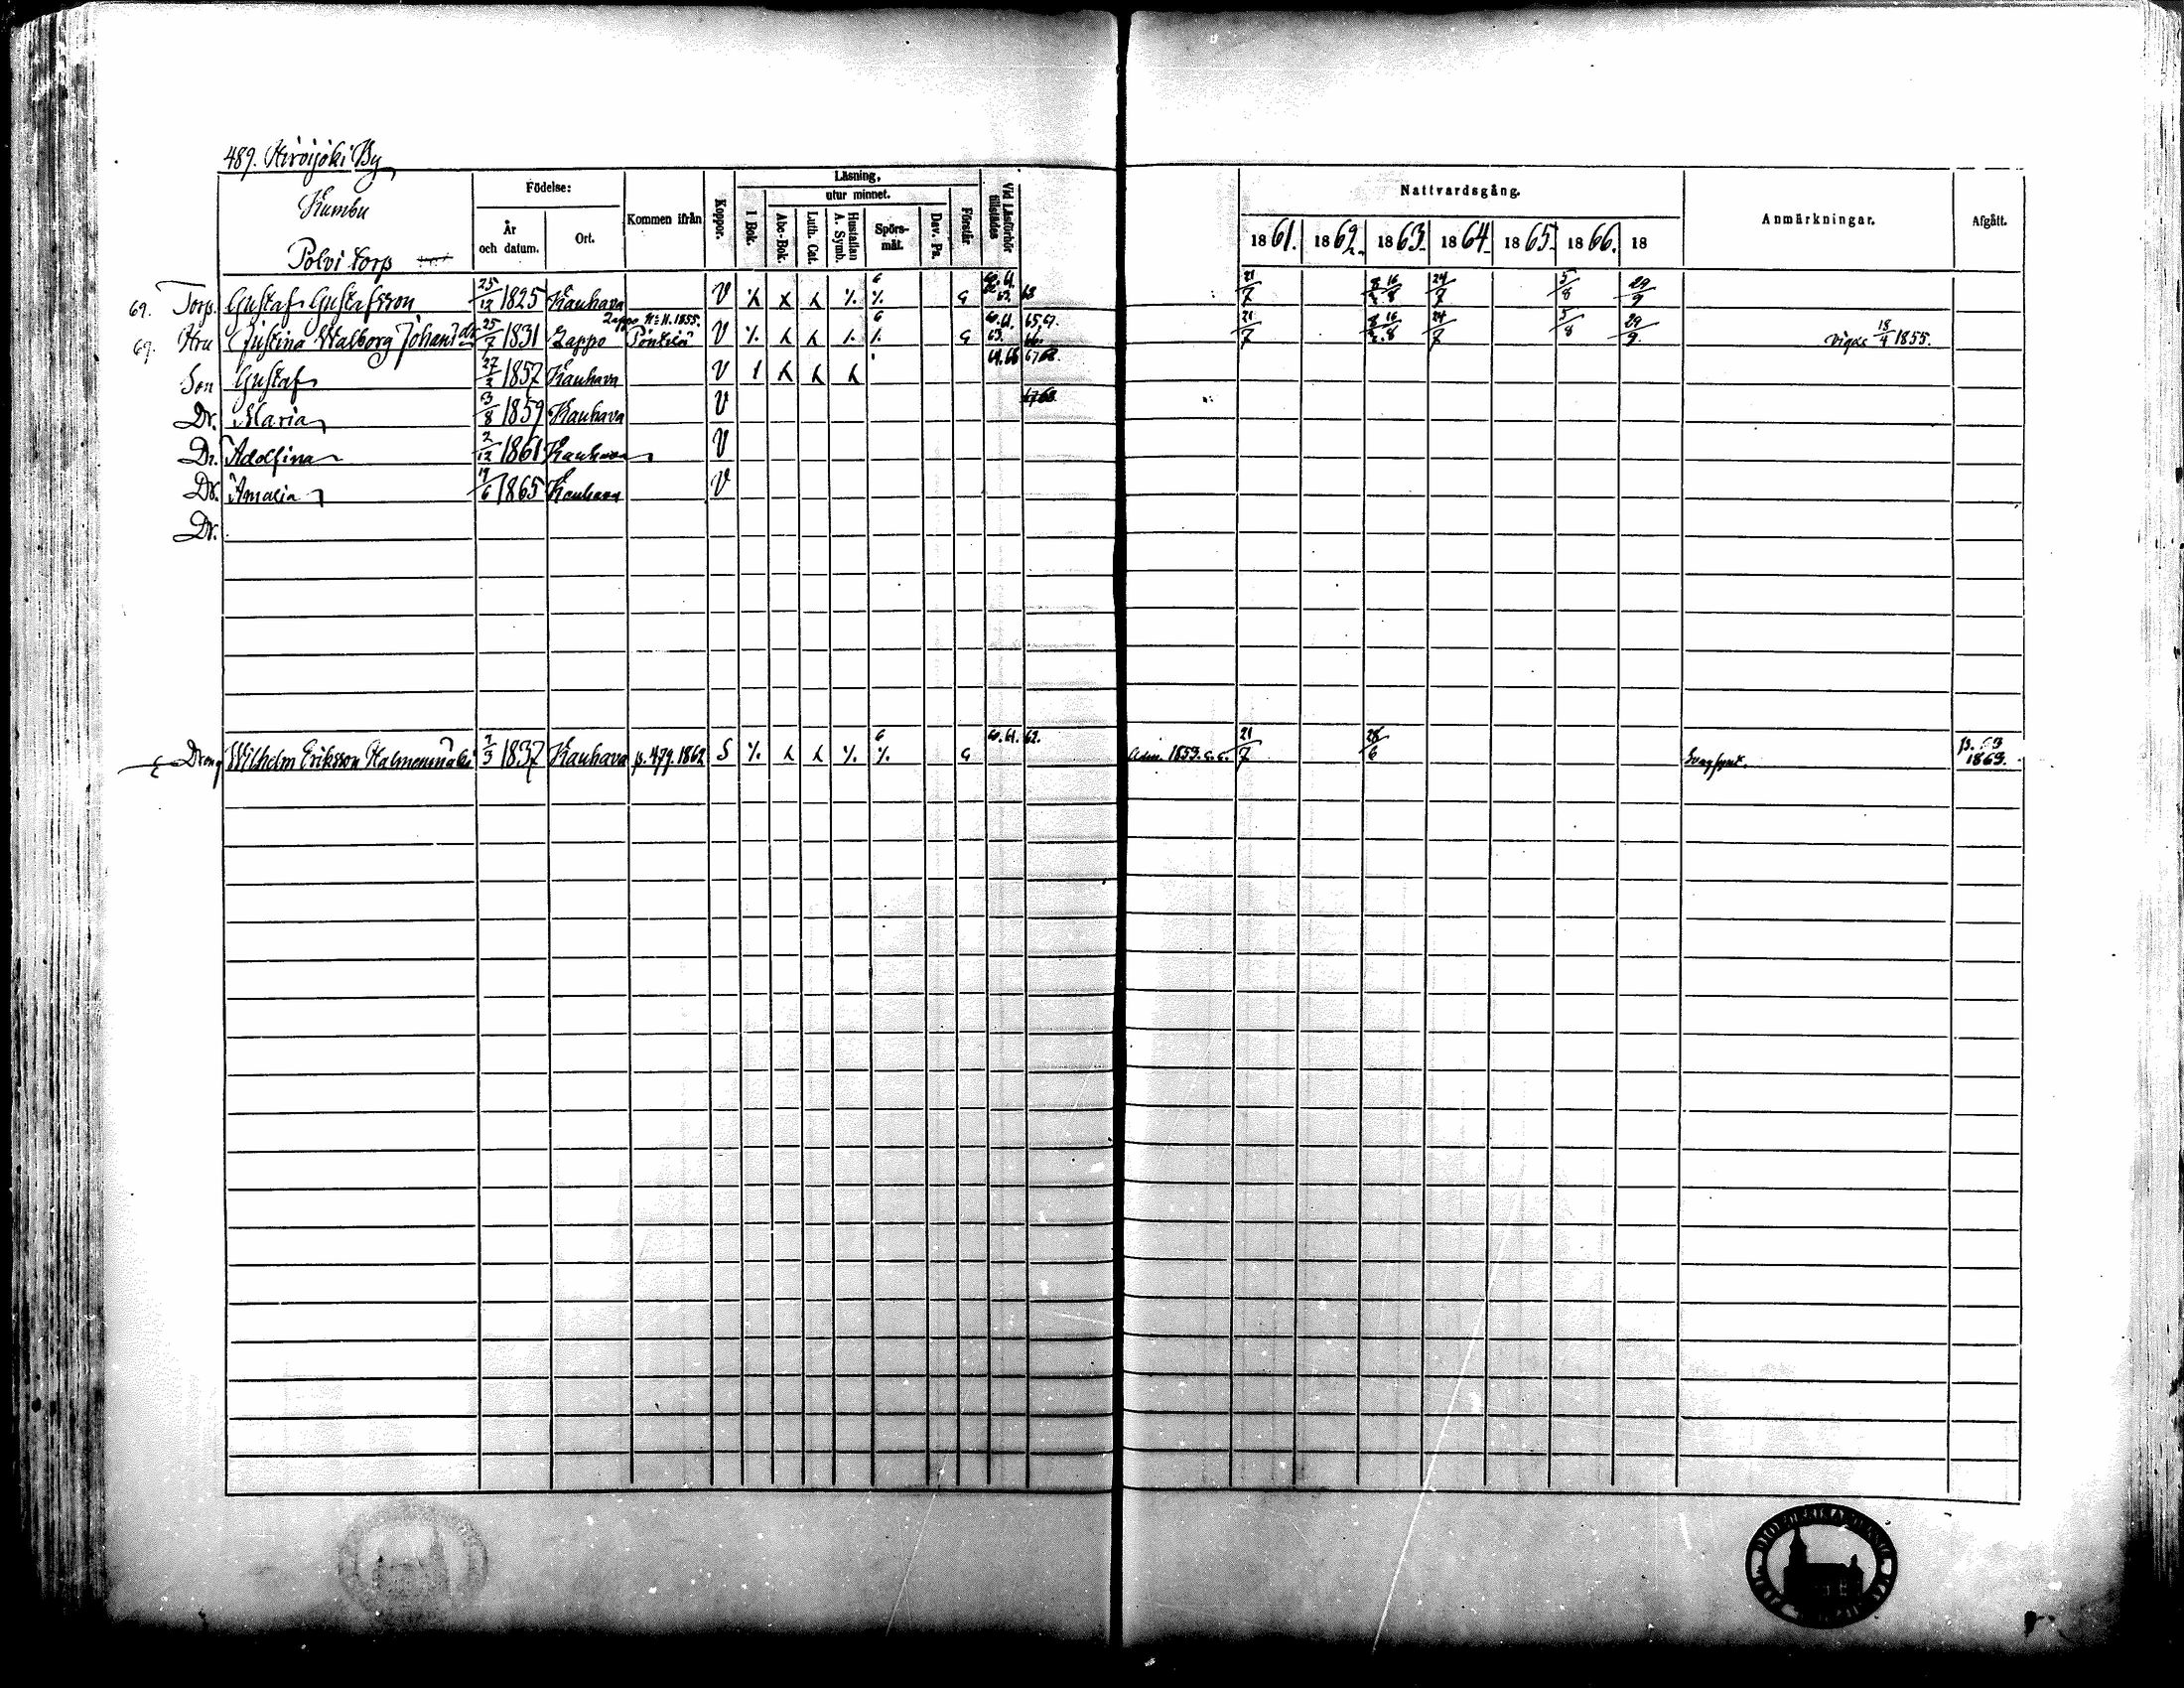 489. Hirvijoki By
Kumbu
Polvi torp
Födelse:
År och datum.
Ort.
Kommen ifrån
Koppor.
Läsning,
I Bok.
utur minnet.
Abc-Bok.
Luth. Cat.
Hustaflan A. Symb.
Spörs-mål.
Dav. Ps.
Förstår
Vid Läsförhör tillstädes
Nattvardsgång.
1861. 1862. 1863. 1864. 1865. 1866. 18
Anmärkningar.
Afgått.
69. Torp. Gustaf Gustafsson 25/12 1825 Kauhava V G 63 21/7 16/8 24/7 5/8 29/9
69. Hru Justina Walborg Johansdr 25/7 1831 Lappo Lappo 1855. V 6 G 60.61. 63. 65.67. 66. 21/7 16/8 24/7 5/8 29/9 vigde 18/4 1855.
Son Gustaf 27/2 1857 Kauhava V
Dr. Maria 3/8 1859 Kauhava V
Dr. Adolfina 2/12 1861 Kauhava V
Dr. Amalia 19/6 1865 Kauhava V
Dr.
Dreng Wilhelm Eriksson 7/3 1837 Kauhava p. 479. 1862 S 6 G 60.61. 62. Adm. 1853. 21/7 28/6 p. 63 1863.